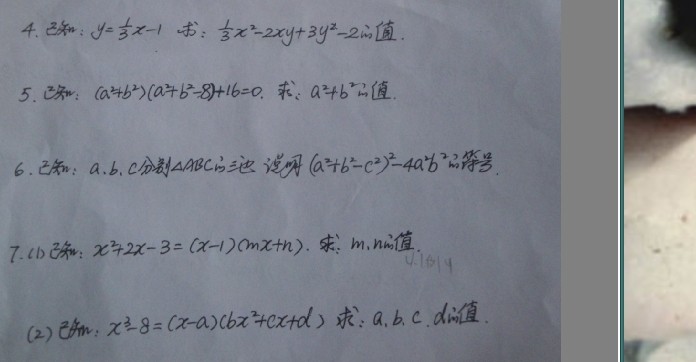 4. 已知: y=⅓x-1 求: ⅓x²-2xy+3y²-2的值.
5. 已知: (a²+b²)(a²+b²-8)+16=0. 求: a²+b²的值.
6. 已知: a.b.c分别△ABC的三边 说明 (a²+b²-c²)²-4a²b²的符号.
7.(1) 已知: x²+2x-3=(x-1)(mx+n). 求: m.n的值.
(2) 已知: x³-8=(x-a)(bx²+cx+d) 求: a.b.c.d的值.